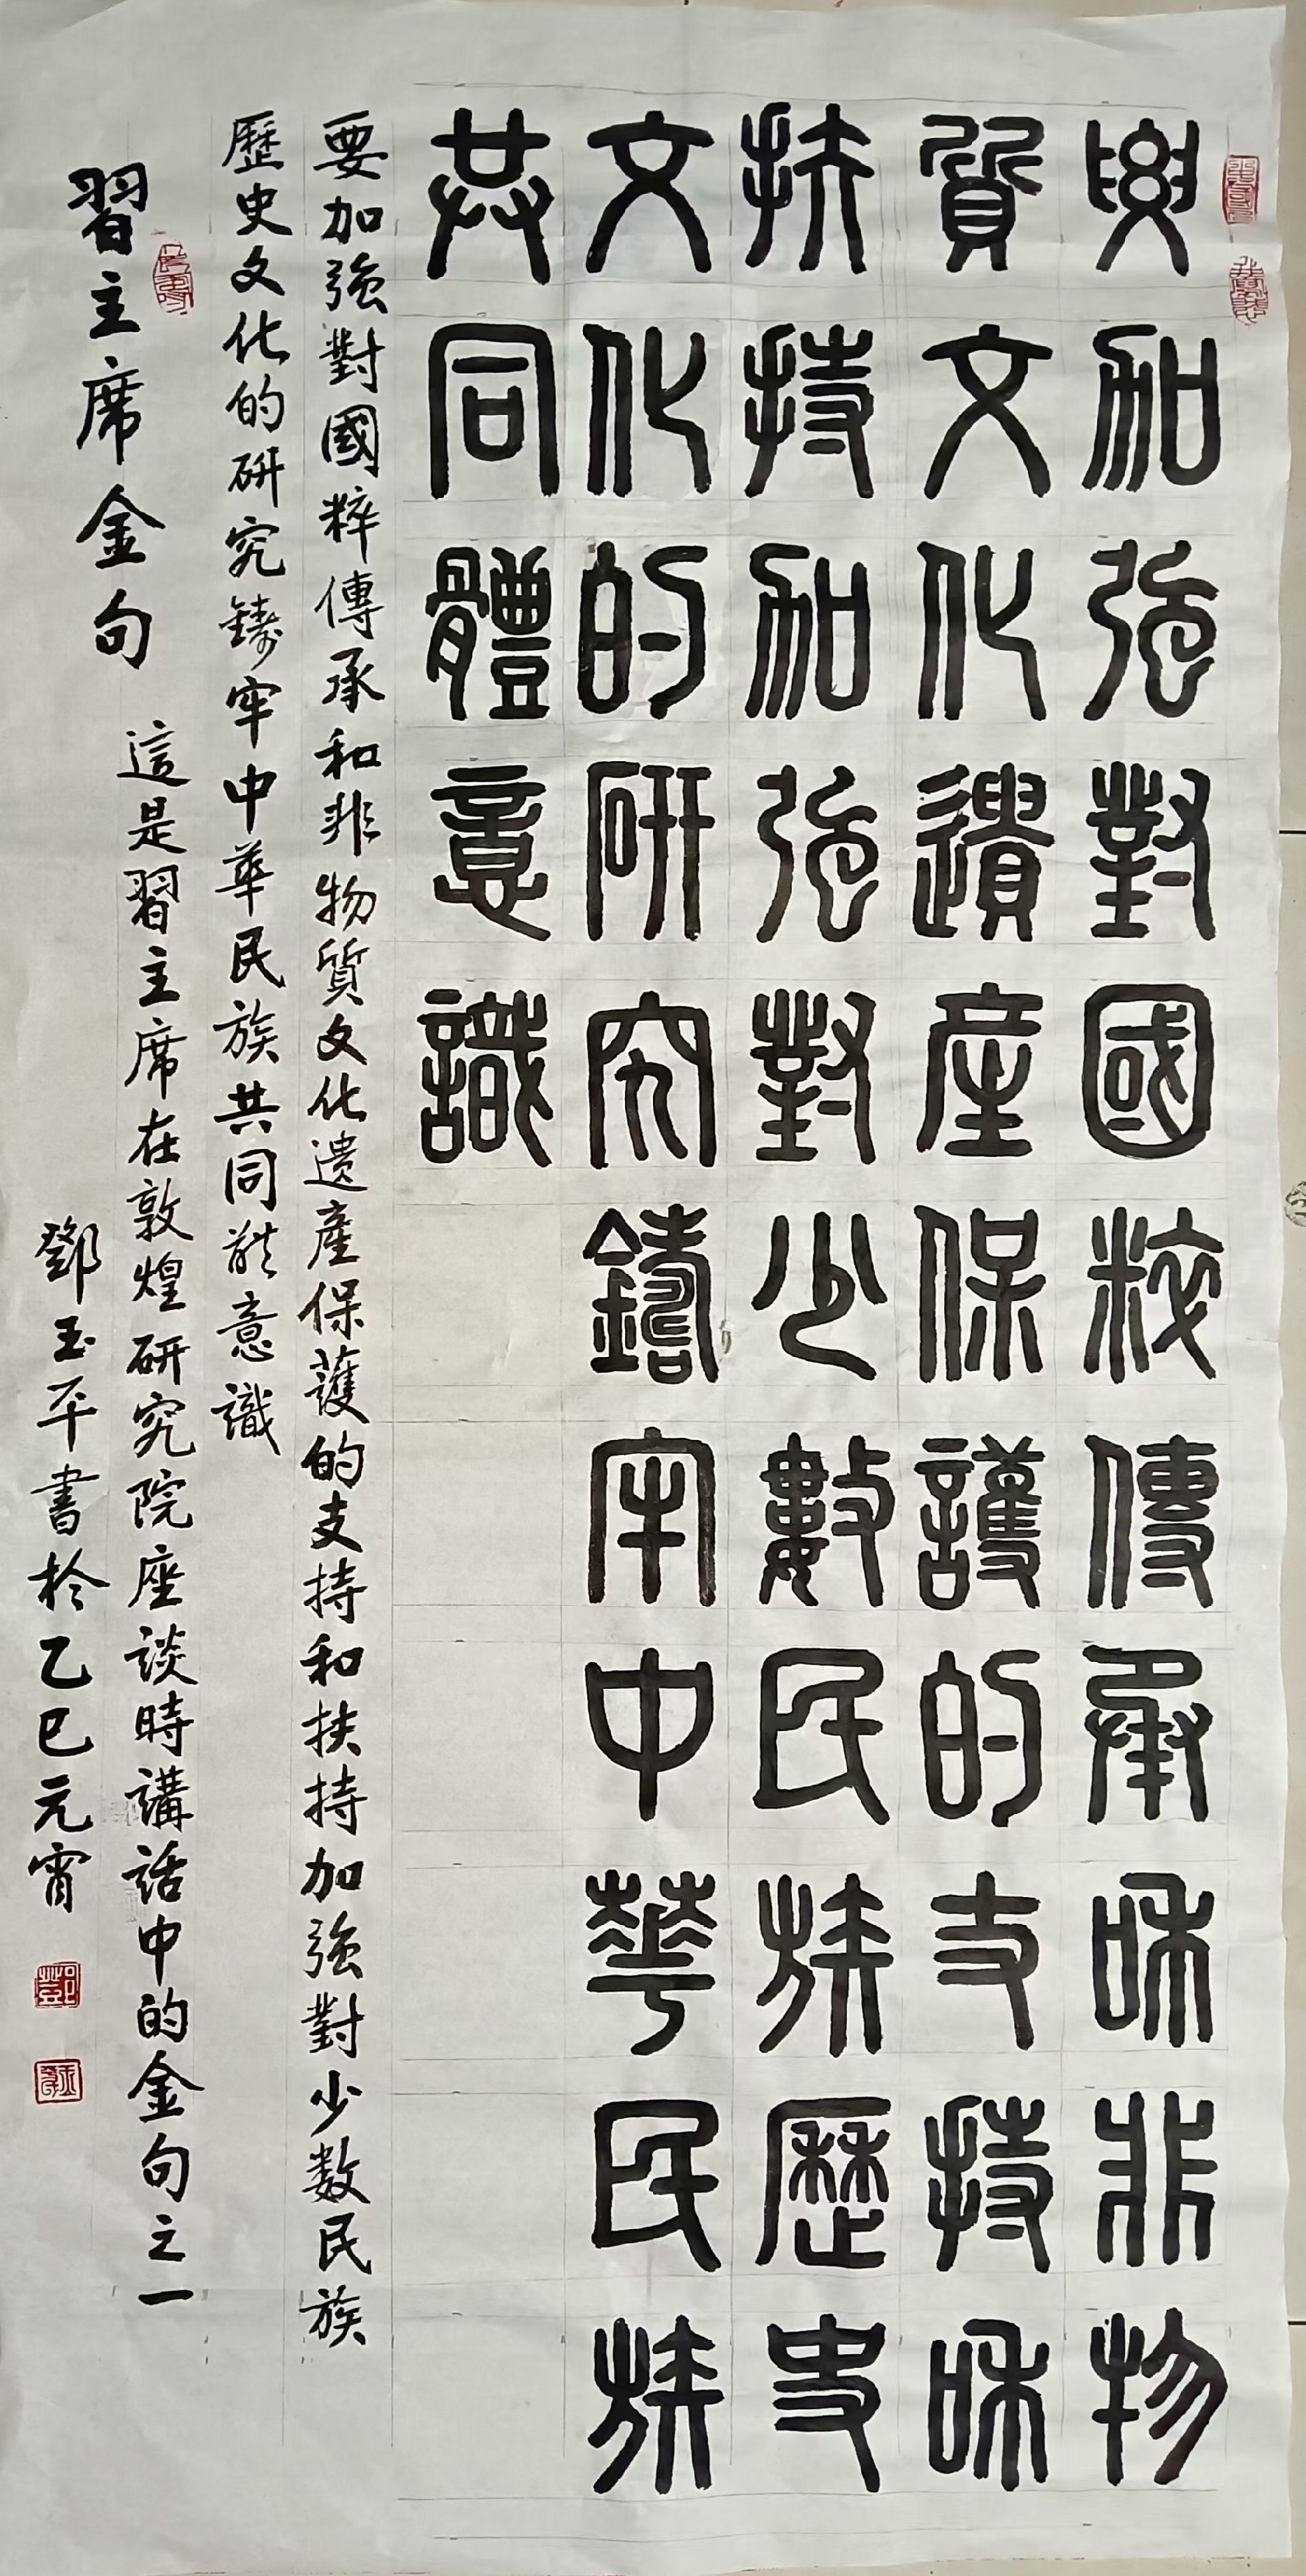 要加強對國粹傳承和非物
質文化遺產保護的支持和
扶持加強對少數民族歷史
文化的研究鑄牢中華民族
共同體意識
要加強對國粹傳承和非物質文化遗產保護的支持和扶持加強對少数民族
歷史文化的研究鑄牢中華民族共同體意識
習主席金句
這是習主席在敦煌研究院座談時講話中的金句之一
鄧玉平書於乙巳元宵